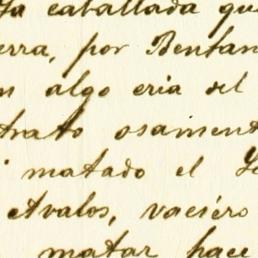 la caballada qu
erra, por Bentan
n algo eria del
trato osament
i matado el
Avalos, vaciero
matar hace